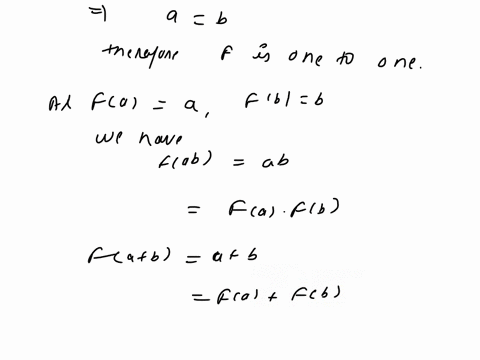 ⇒ a = b
therefore F is one to one.
As F(a) = a, F(b) = b
we have
F(ab) = ab
= F(a) . F(b)
F(a+b) = a + b
= F(a) + F(b)